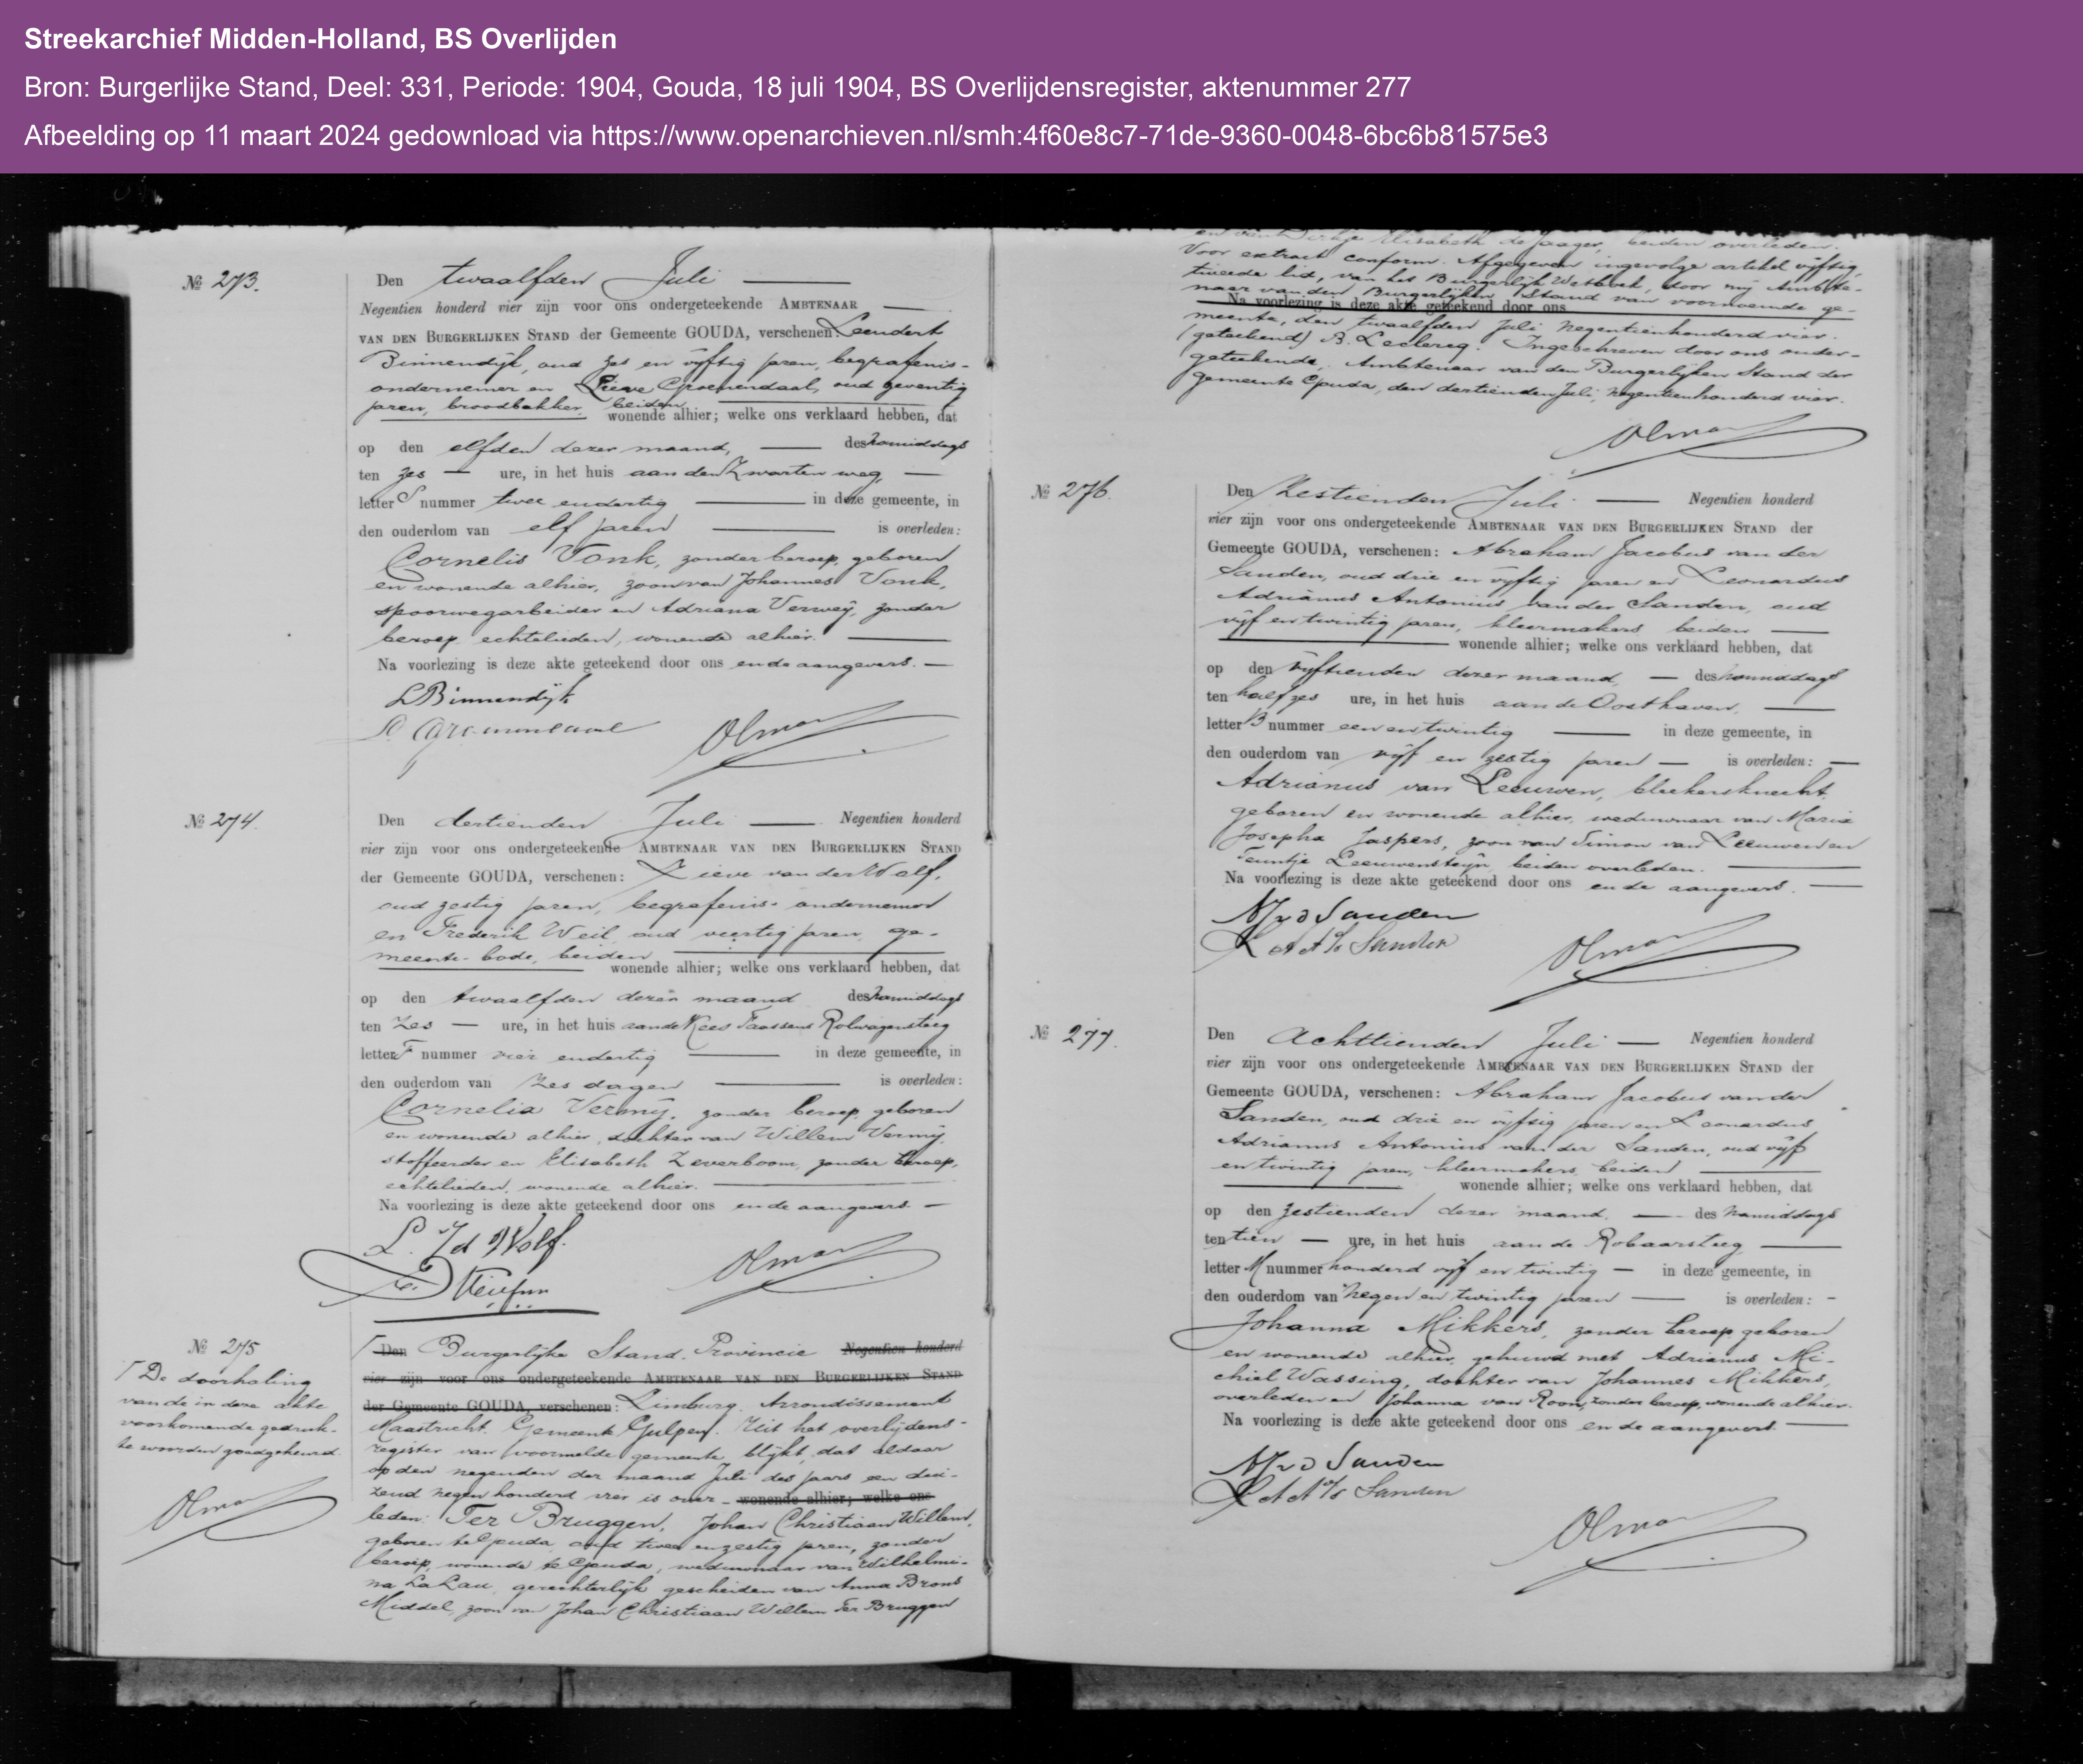 Streekarchief Midden-Holland, BS Overlijden
Bron: Burgerlijke Stand, Deel: 331, Periode: 1904, Gouda, 18 juli 1904, BS Overlijdensregister, aktenummer 277
Afbeelding op 11 maart 2024 gedownload via https://www.openarchieven.nl/smh:4f60e8c7-71de-9360-0048-6bc6b81575e3
№ 273.
Den twaalfden Juli
Negentien honderd vier zijn voor ons ondergeteekende AMBTENAAR
VAN DEN BURGERLIJKEN STAND der Gemeente GOUDA, verschenen: Leendert
Binnendijk, oud zes en vijftig jaren, begrafenis-
ondernemer en Pieter Groenendaal, oud zeventig
jaren, broodbakker, beiden
wonende alhier; welke ons verklaard hebben, dat
op den elfden dezer maand, des namiddags
ten zes ure, in het huis aan den Zwarten weg,
letter S nummer twee en dertig in deze gemeente, in
den ouderdom van elf jaren is overleden:
Cornelis Vonk, zonder beroep, geboren
en wonende alhier, zoon van Johannes Vonk,
spoorwegarbeider en Adriana Verweij, zonder
beroep, echtelieden, wonende alhier.
Na voorlezing is deze akte geteekend door ons en de aangevers.
L Binnendijk
№ 274.
Den dertienden Juli Negentien honderd
vier zijn voor ons ondergeteekende AMBTENAAR VAN DEN BURGERLIJKEN STAND
der Gemeente GOUDA, verschenen: van der Wolf,
oud zestig jaren, begrafenis-ondernemer
en Frederik Weil, oud veertig jaren, ge-
meente-bode, beiden
wonende alhier; welke ons verklaard hebben, dat
op den twaalfden dezer maand des namiddags
ten zes ure, in het huis aan de Kees Faassens Rolwagensteeg
letter F nummer vier en dertig in deze gemeente, in
den ouderdom van zes dagen is overleden:
Cornelia Vermij, zonder beroep, geboren
en wonende alhier, dochter van Willem Vermij,
stoffeerder en Elisabeth Zeverboom, zonder beroep,
echtelieden, wonende alhier.
Na voorlezing is deze akte geteekend door ons en de aangevers.
№ 275
De doorhaling
van de in deze akte
voorkomende gedruk-
te woorden goedgekeurd.
Den Burgerlijke Stand. Provincie Negentien honderd
vier zijn voor ons ondergeteekende AMBTENAAR VAN DEN BURGERLIJKEN STAND
der Gemeente GOUDA, verschenen: Limburg. Arrondissement
Maastricht. Gemeente Gulpen. Uit het overlijdens-
register van voormelde gemeente blijkt, dat aldaar
op den negenden der maand Juli des jaars een dui-
zend negen honderd vier is over- wonende alhier; welke ons
leden: Ter Bruggen, Johan Christiaan Willem,
geboren te Gouda, oud twee en zestig jaren, zonder
beroep, wonende te Gouda, weduwnaar van Wilhelmi-
na La Lau, gerechterlijk gescheiden van Anna Brons
Middel, zoon van Johan Christiaan Willem Ter Bruggen
en van Dirkje Elisabeth de Jaager, beiden overleden.
Voor extract conform. Afgegeven ingevolge artikel vijftig,
tweede lid, van het Burgerlijk Wetboek, door mij Ambte-
naar van den Burgerlijken Stand van voornoemde ge-
Na voorlezing is deze akte geteekend door ons
meente, den twaalfden Juli negentienhonderd vier.
(geteekend) B. Leclercq. Ingeschreven door ons onder-
geteekende, Ambtenaar van den Burgerlijken Stand der
gemeente Gouda, den dertienden Juli, negentienhonderd vier.
№ 276.
Den Zestienden Juli Negentien honderd
vier zijn voor ons ondergeteekende AMBTENAAR VAN DEN BURGERLIJKEN STAND der
Gemeente GOUDA, verschenen: Abraham Jacobus van der
Sanden, oud drie en vijftig jaren en Leonardus
Adrianus Antonius van der Sanden, oud
vijf en twintig jaren, kleermakers, beiden
wonende alhier; welke ons verklaard hebben, dat
op den vijftienden dezer maand, des voormiddags
ten half zes ure, in het huis aan de Oosthaven,
letter B nummer een en twintig in deze gemeente, in
den ouderdom van vijf en zestig jaren is overleden:
Adrianus van Leeuwen, bleekersknecht,
geboren en wonende alhier, weduwnaar van Maria
Josepha Jaspers, zoon van Simon van Leeuwen en
Teuntje Leeuwensteijn, beiden overleden.
Na voorlezing is deze akte geteekend door ons en de aangevers.
AJ v d Sanden
L A A v/d Sanden
№ 277.
Den Achttienden Juli Negentien honderd
vier zijn voor ons ondergeteekende AMBTENAAR VAN DEN BURGERLIJKEN STAND der
Gemeente GOUDA, verschenen: Abraham Jacobus van der
Sanden, oud drie en vijftig jaren en Leonardus
Adrianus Antonius van der Sanden, oud vijf
en twintig jaren, kleermakers, beiden
wonende alhier; welke ons verklaard hebben, dat
op den zestienden dezer maand, des namiddags
ten tien ure, in het huis aan de Robaarsteeg,
letter M nummer honderd vijf en twintig in deze gemeente, in
den ouderdom van negen en twintig jaren is overleden:
Johanna Mikkers, zonder beroep, geboren
en wonende alhier, gehuwd met Adrianus Mi-
chiel Wassing, dochter van Johannes Mikkers,
overleden en Johanna van Roon, zonder beroep, wonende alhier.
Na voorlezing is deze akte geteekend door ons en de aangevers.
AJ v d Sanden
L A A v/d Sanden